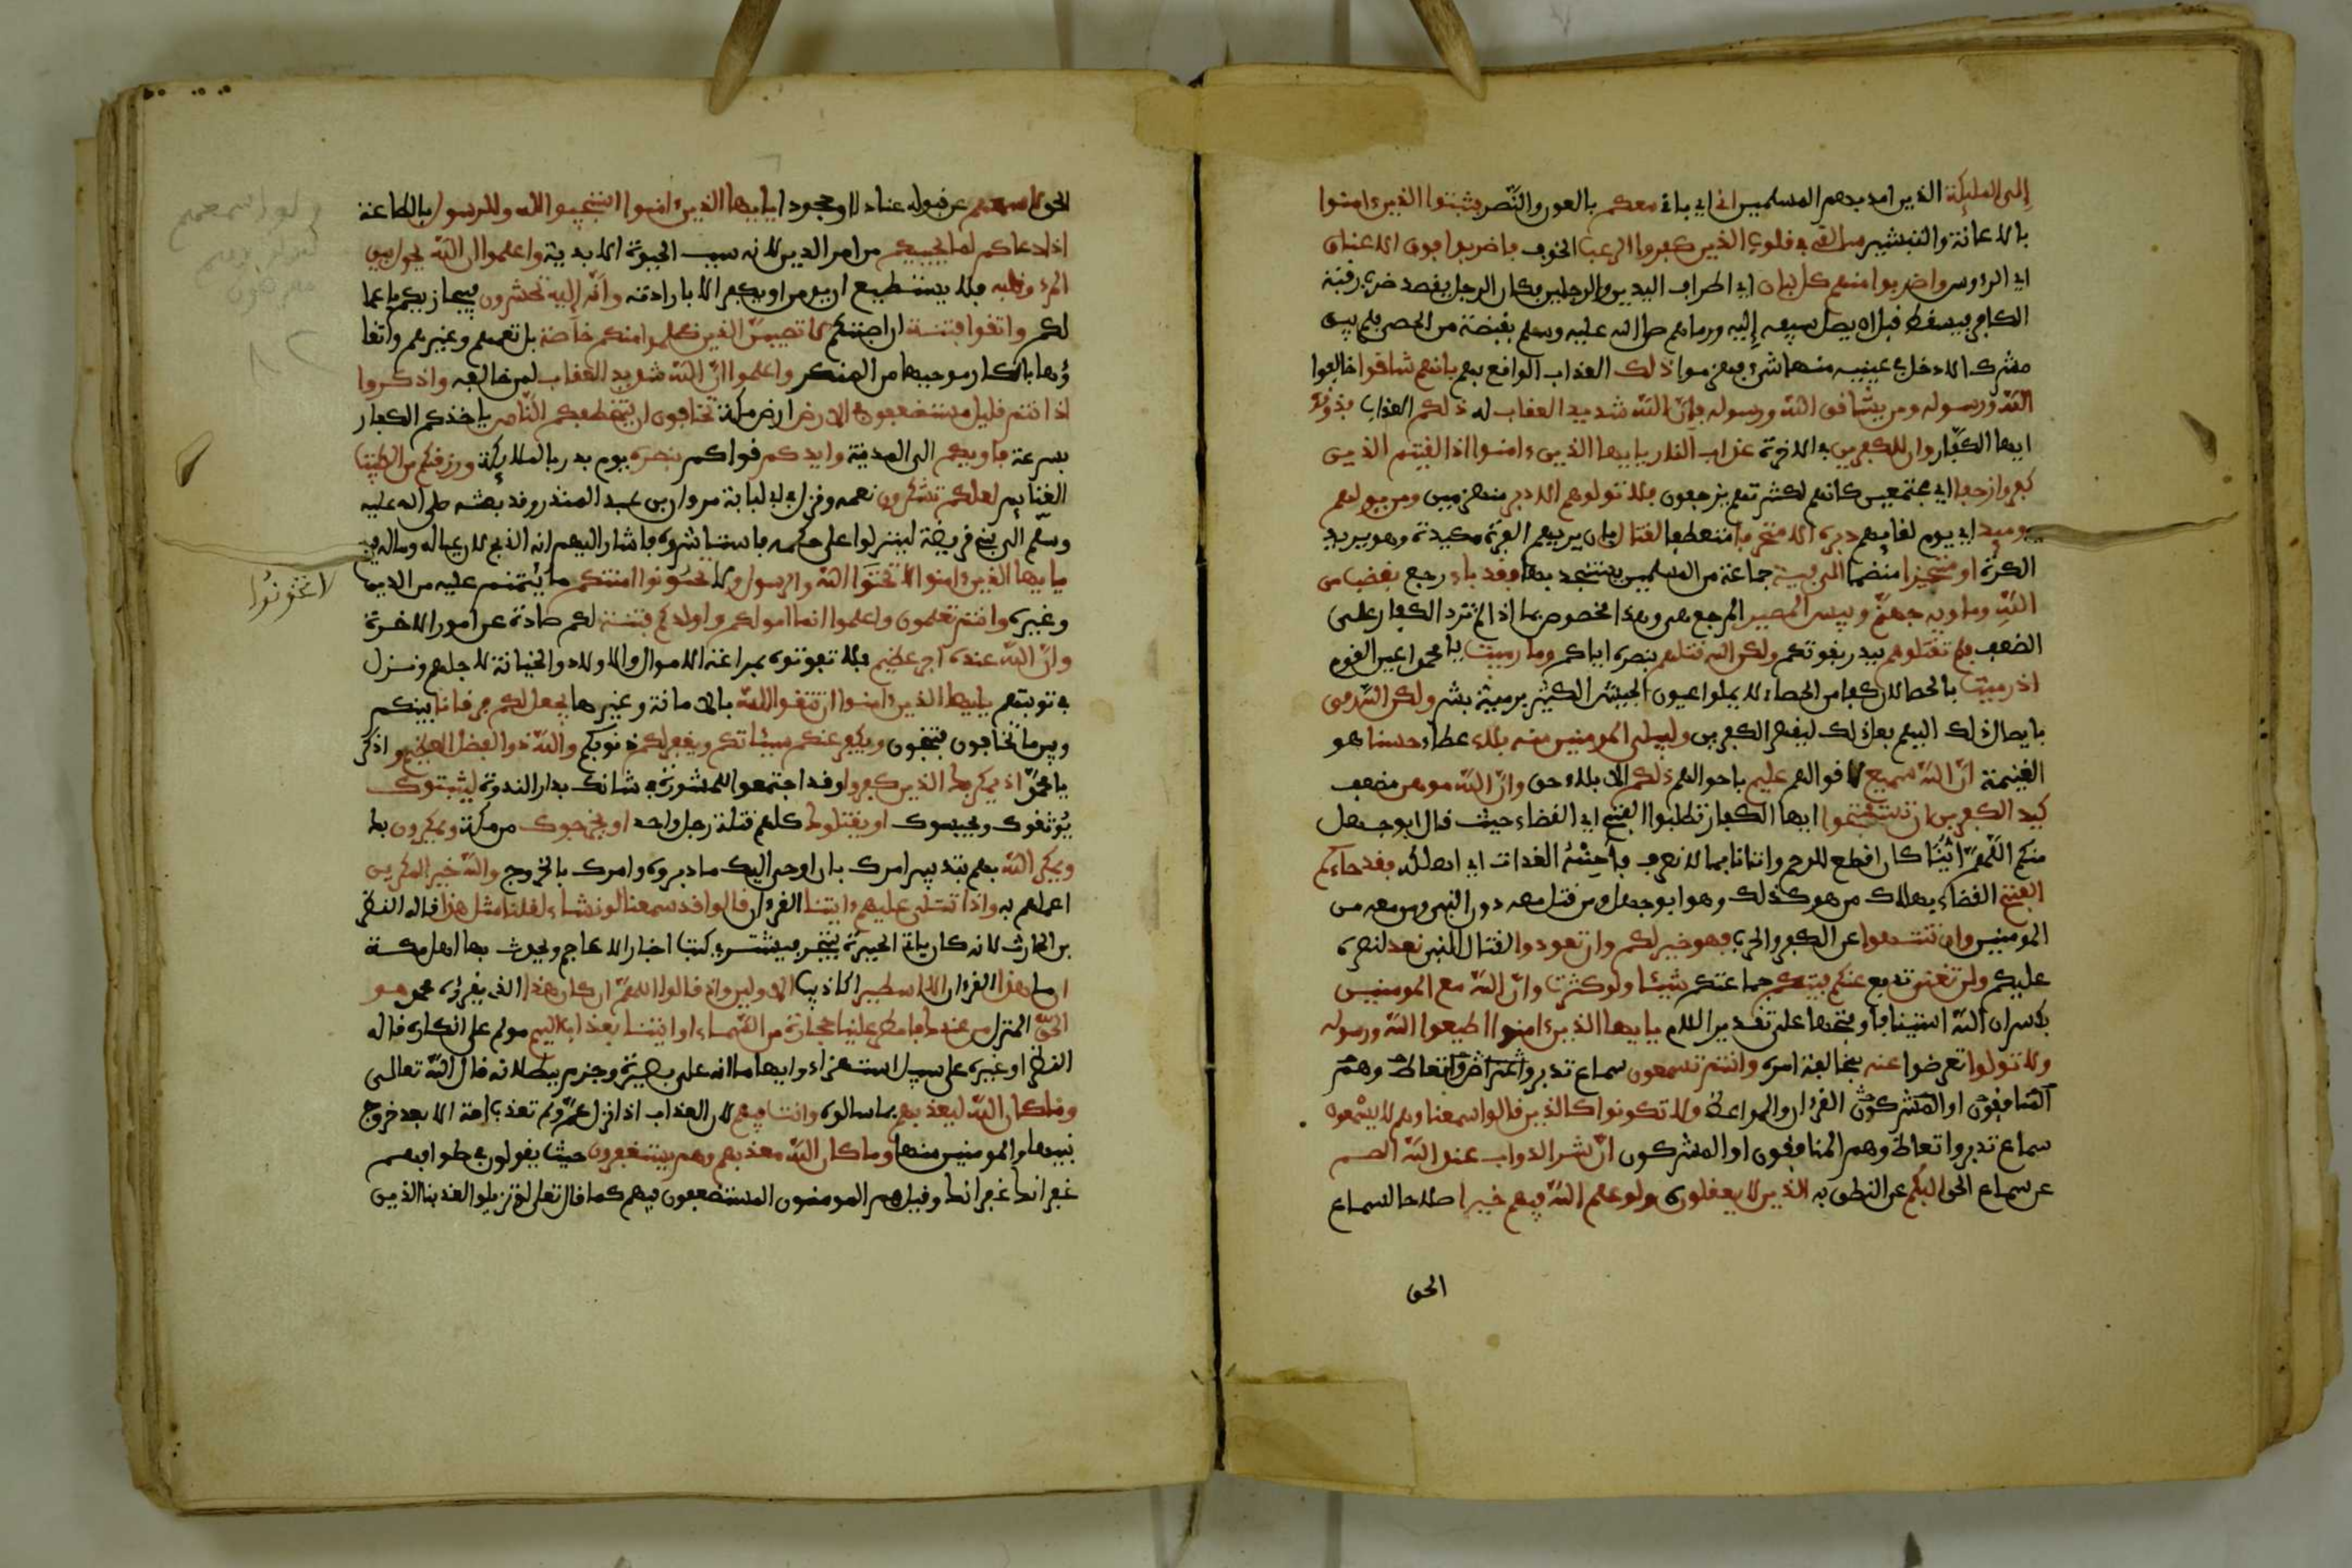 إلى الملئكة الذين امد بهم المسلمين اني اي باني معكم بالعون والنصر فثبتوا الذين ءامنوا
بالاعانة والتبشير سالقي في قلوب الذين كفروا الرعب الخوف فاضربوا فوق الاعناق
اي الرءوس واضربوا منهم كل بنان اي اطراف اليدين والرجلين فكان الرجل يقصد ضرب رقبة
الكافر فيسقط قبل ان يصل سيفه إليه ورماهم صلى الله عليه وسلم بقبضة من الحصى فلم يبق
مشرك الا دخل في عينيه منها شيء فهزموا ذلك العذاب الواقع بهم بانهم شاقوا خالفوا
الله ورسوله ومن يشاقق الله ورسوله فإن الله شديد العقاب له ذلكم العذاب فذوقوه
ايها الكفار وان للكفرين في الاخرة عذاب النار يايها الذين ءامنوا اذا لقيتم الذين
كفروا زحفا اي مجتمعين كانهم لكثرتهم يزحفون فلا تولوهم الادبر منهزمين ومن يولهم
يوميذ اي يوم لقايهم دبره الا متحرفا منعطفا لقتال بان يريهم الفرة مكيدة وهو يريد
الكرة او متحيزا منضما الى فية جماعة من المسلمين يستنجد بها فقد باء رجع بغضب من
الله وماويه جهنم وبيس المصير المرجع هي وهذا مخصوص بما اذا لم تزد الكفار على
الضعف فلم تقتلوهم ببدر بقوتكم ولكن الله قتلهم بنصره اياكم وما رميت يا محمد اعين القوم
اذ رميت بالحصا لان كفا من الحصاء لا يملوا عيون الجيش الكثير برمية بشر ولكن الله رمى
بايصال ذلك اليهم فعل ذلك ليقهر الكفرين وليبلي المومنين منه بلاء عطاء حسنا هو
الغنيمة ان الله سميع لاقوالهم عليم باحوالهم ذلكم الابلاء حق وان الله موهن مضعف
كيد الكفرين ان تستفتحوا ايها الكفار تطلبوا الفتح اي القضاء حيث قال ابو جهل
منكم اللهم اينا كان اقطع للرحم واتانا بما لا نعرف فأحنه الغداة اي اهلكه فقد جاءكم
الفتح القضاء بهلاك من هو كذلك وهو ابو جهل ومن قتل معه دون النبي ومن معه من
المومنين وان تنتهوا عن الكفر والحرب فهو خير لكم وان تعودوا لقتال النبي نعد لنصره
عليكم ولن تغني تدفع عنكم فيتكم جماعتكم شيئا ولو كثرت وان الله مع المومنين
بكسر ان الله استينافا وفتحها على تقدير اللام يايها الذين ءامنوا اطيعوا الله ورسوله
ولا تولوا تعرضوا عنه بمخالفة امره وانتم تسمعون سماع تدبر واتعاظ وهم
المنافقون او المشركون القرءان والمواعظ ولا تكونوا كالذين قالوا سمعنا وهم لا يسمعون
سماع تدبر واتعاظ وهم المنافقون او المشركون ان شر الدواب عند الله الصم
عن سماع الحق البكم عن النطق به الذين لا يعقلون ولو علم الله فيهم خيرا صلاحا لسماع
الحق
الحق لاسمعهم عن قبوله عنادا وجحودا يايها الذين ءامنوا استجيبوا لله وللرسول بالطاعة
اذا دعاكم لما يحييكم من امر الدين لانه سبب الحيوة الابدية واعلموا ان الله يحول بين
المرء وقلبه فلا يستطيع ان يومن او يكفر الا بارادته وانه إليه تحشرون فيجازيكم باعما
لكم واتقوا فتنة ان اصابتكم لا تصيبن الذين ظلموا منكم خاصة بل تعمهم وغيرهم واتقا
ؤها بانكار موجبها من المنكر واعلموا ان الله شديد العقاب لمن خالفه واذكروا
اذ انتم قليل مستضعفون في الارض ارض مكة تخافون ان يتخطفكم الناس ياخذكم الكفار
بسرعة فاويكم الى المدينة وايدكم قواكم بنصره يوم بدر بالملائكة ورزقكم من الطيبت
الغنايم لعلكم تشكرون نعمه ونزل في ابي لبابة مروان بن عبد المنذر وقد بعثه صلى الله عليه
وسلم الى بني قريضة لينزلوا على حكمه فاستشاروه فاشار اليهم انه الذبح لان عياله وماله فيهم
يايها الذين ءامنوا لا تخونوا الله والرسول ولا تخونوا امنتكم ما يُتمنتم عليه من الدين
لا تخونُوا
وغيره وانتم تعلمون واعلموا انما امولكم واولدكم فتنة لكم صادة عن امور الاخرة
وان الله عنده أجر عظيم فلا تفوتوه بمراعاة الاموال والاولاد والخيانة لاجلهم ونزل
في توبتهم يايها الذين ءامنوا ان تتقوا الله بالامانة وغيرها يجعل لكم فرقانا بينكم
وبين ما تخافون فتنجون ويكفر عنكم سيئاتكم ويغفر لكم ذنوبكم والله ذو الفضل العظيم واذكر
يا محمد اذ يمكر بك الذين كفروا وقد اجتمعوا للمشورة في شانك بدار الندوة ليثبتوك
يوثقوك ويحبسوك او يقتلوك كلهم قتلة رجل واحد او يخرجوك من مكة ويمكرون بك
ويمكر الله بهم بتدبير امرك بان اوحى اليك ما دبروه وامرك بالخروج والله خير المكرين
اعلمهم به واذا تتلى عليهم ءايتنا القرءان قالوا قد سمعنا لو نشاء لقلنا مثل هذا قاله النضر
بن الحارث لانه كان ياتي الحيرة يتجر فيشتري كتب اخبار الاعاجم ويحدث بها اهل مكة
ان ما هذا القرءان الا اسطير اكاذيب الاولين واذ قالوا اللهم ان كان هذا الذي يقراه محمد هو
الحق المنزل من عندك فامطر علينا حجارة من السماء او ائتنا بعذاب اليم مولم على انكاره قاله
النضر او غيره على سبيل استهزاء وايهاما انه على بصيرة وجزم ببطلانه قال الله تعالى
وما كان الله ليعذبهم بما سالوه وانت فيهم لان العذاب اذا نزل عم ولم تعذب امة الا بعد خروج
نبيها والمومنين منها وما كان الله معذبهم وهم يستغفرون حيث يقولون في طوافهم
غفرانك غفرانك وقيل هم المومنون المستضعفون فيهم كما قال تعالى لو تزيلوا لعذبنا الذين